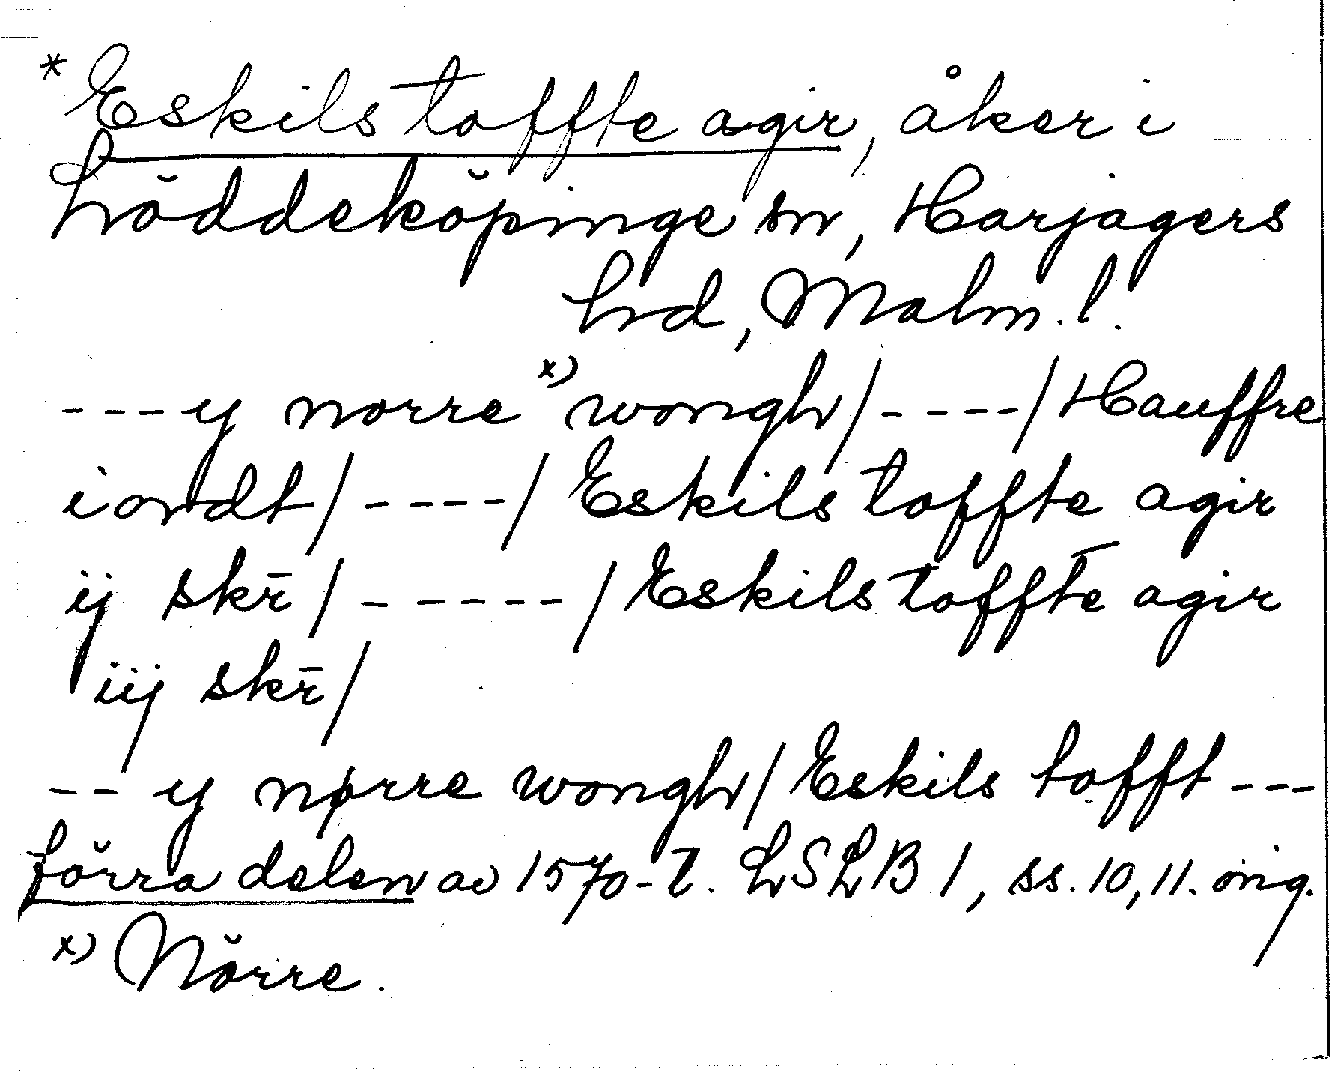 * Eskils toffte agir, åker i
Löddeköpinge sn, Harjagers
hd, Malm. l.
---y norre x) wongh/----/Hauffre
iordt/----/Eskils toffte agir
ij skr̄/-----/Eskils toffte agir
iij skr̄/
-- y nørre wongh/Eskils tofft ---
förra delen av 1570-t. LSLB 1, ss. 10, 11. orig.
x) Nörre.